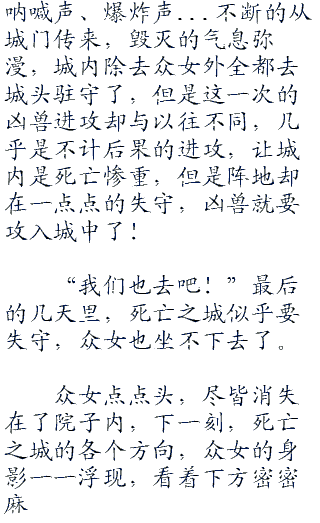 呐喊声、爆炸声...不断的从
城门传来，毁灭的气息弥
漫，城内除去众女外全都去
城头驻守了，但是这一次的
凶兽进攻却与以往不同，几
乎是不计后果的进攻，让城
内是死亡惨重，但是阵地却
在一点点的失守，凶兽就要
攻入城中了！
“我们也去吧！”最后
的几天里，死亡之城似乎要
失守，众女也坐不下去了。
众女点点头，尽皆消失
在了院子内，下一刻，死亡
之城的各个方向，众女的身
影一一浮现，看着下方密密
麻